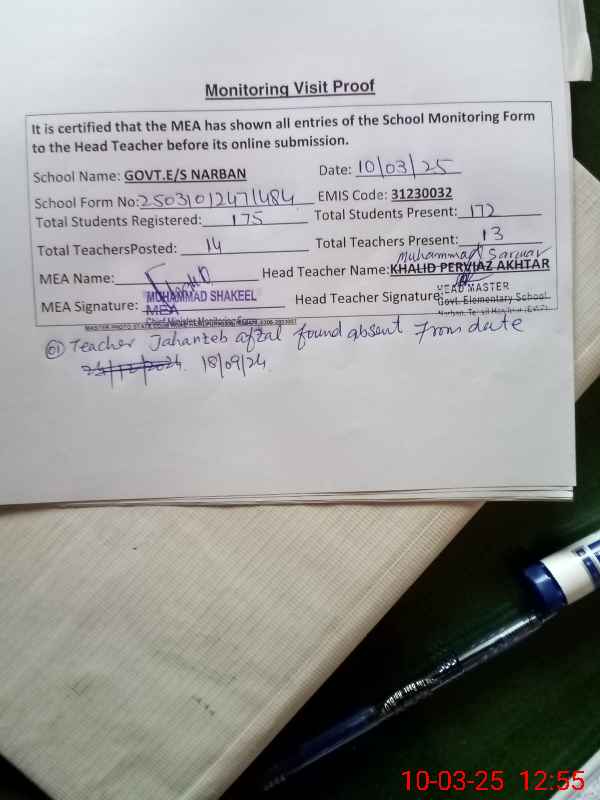 Monitoring Visit Proof
It is certified that the MEA has shown all entries of the School Monitoring Form
to the Head Teacher before its online submission.
School Name: GOVT.E/S NARBAN Date: 10/03/25
School Form No: EMIS Code: 31230032
Total Students Registered: 175 Total Students Present: 172
Total TeachersPosted: 14 Total Teachers Present: 13
Muhammad Sarwar
MEA Name: Head Teacher Name: KHALID PERVIAZ AKHTAR
MUHAMMAD SHAKEEL HEAD MASTER
MEA Signature: MEA Head Teacher Signature: Govt. Elementary School
01 Teacher Jahanzeb afzal found absent From date
24/12/2024. 18/09/24
10-03-25 12:55